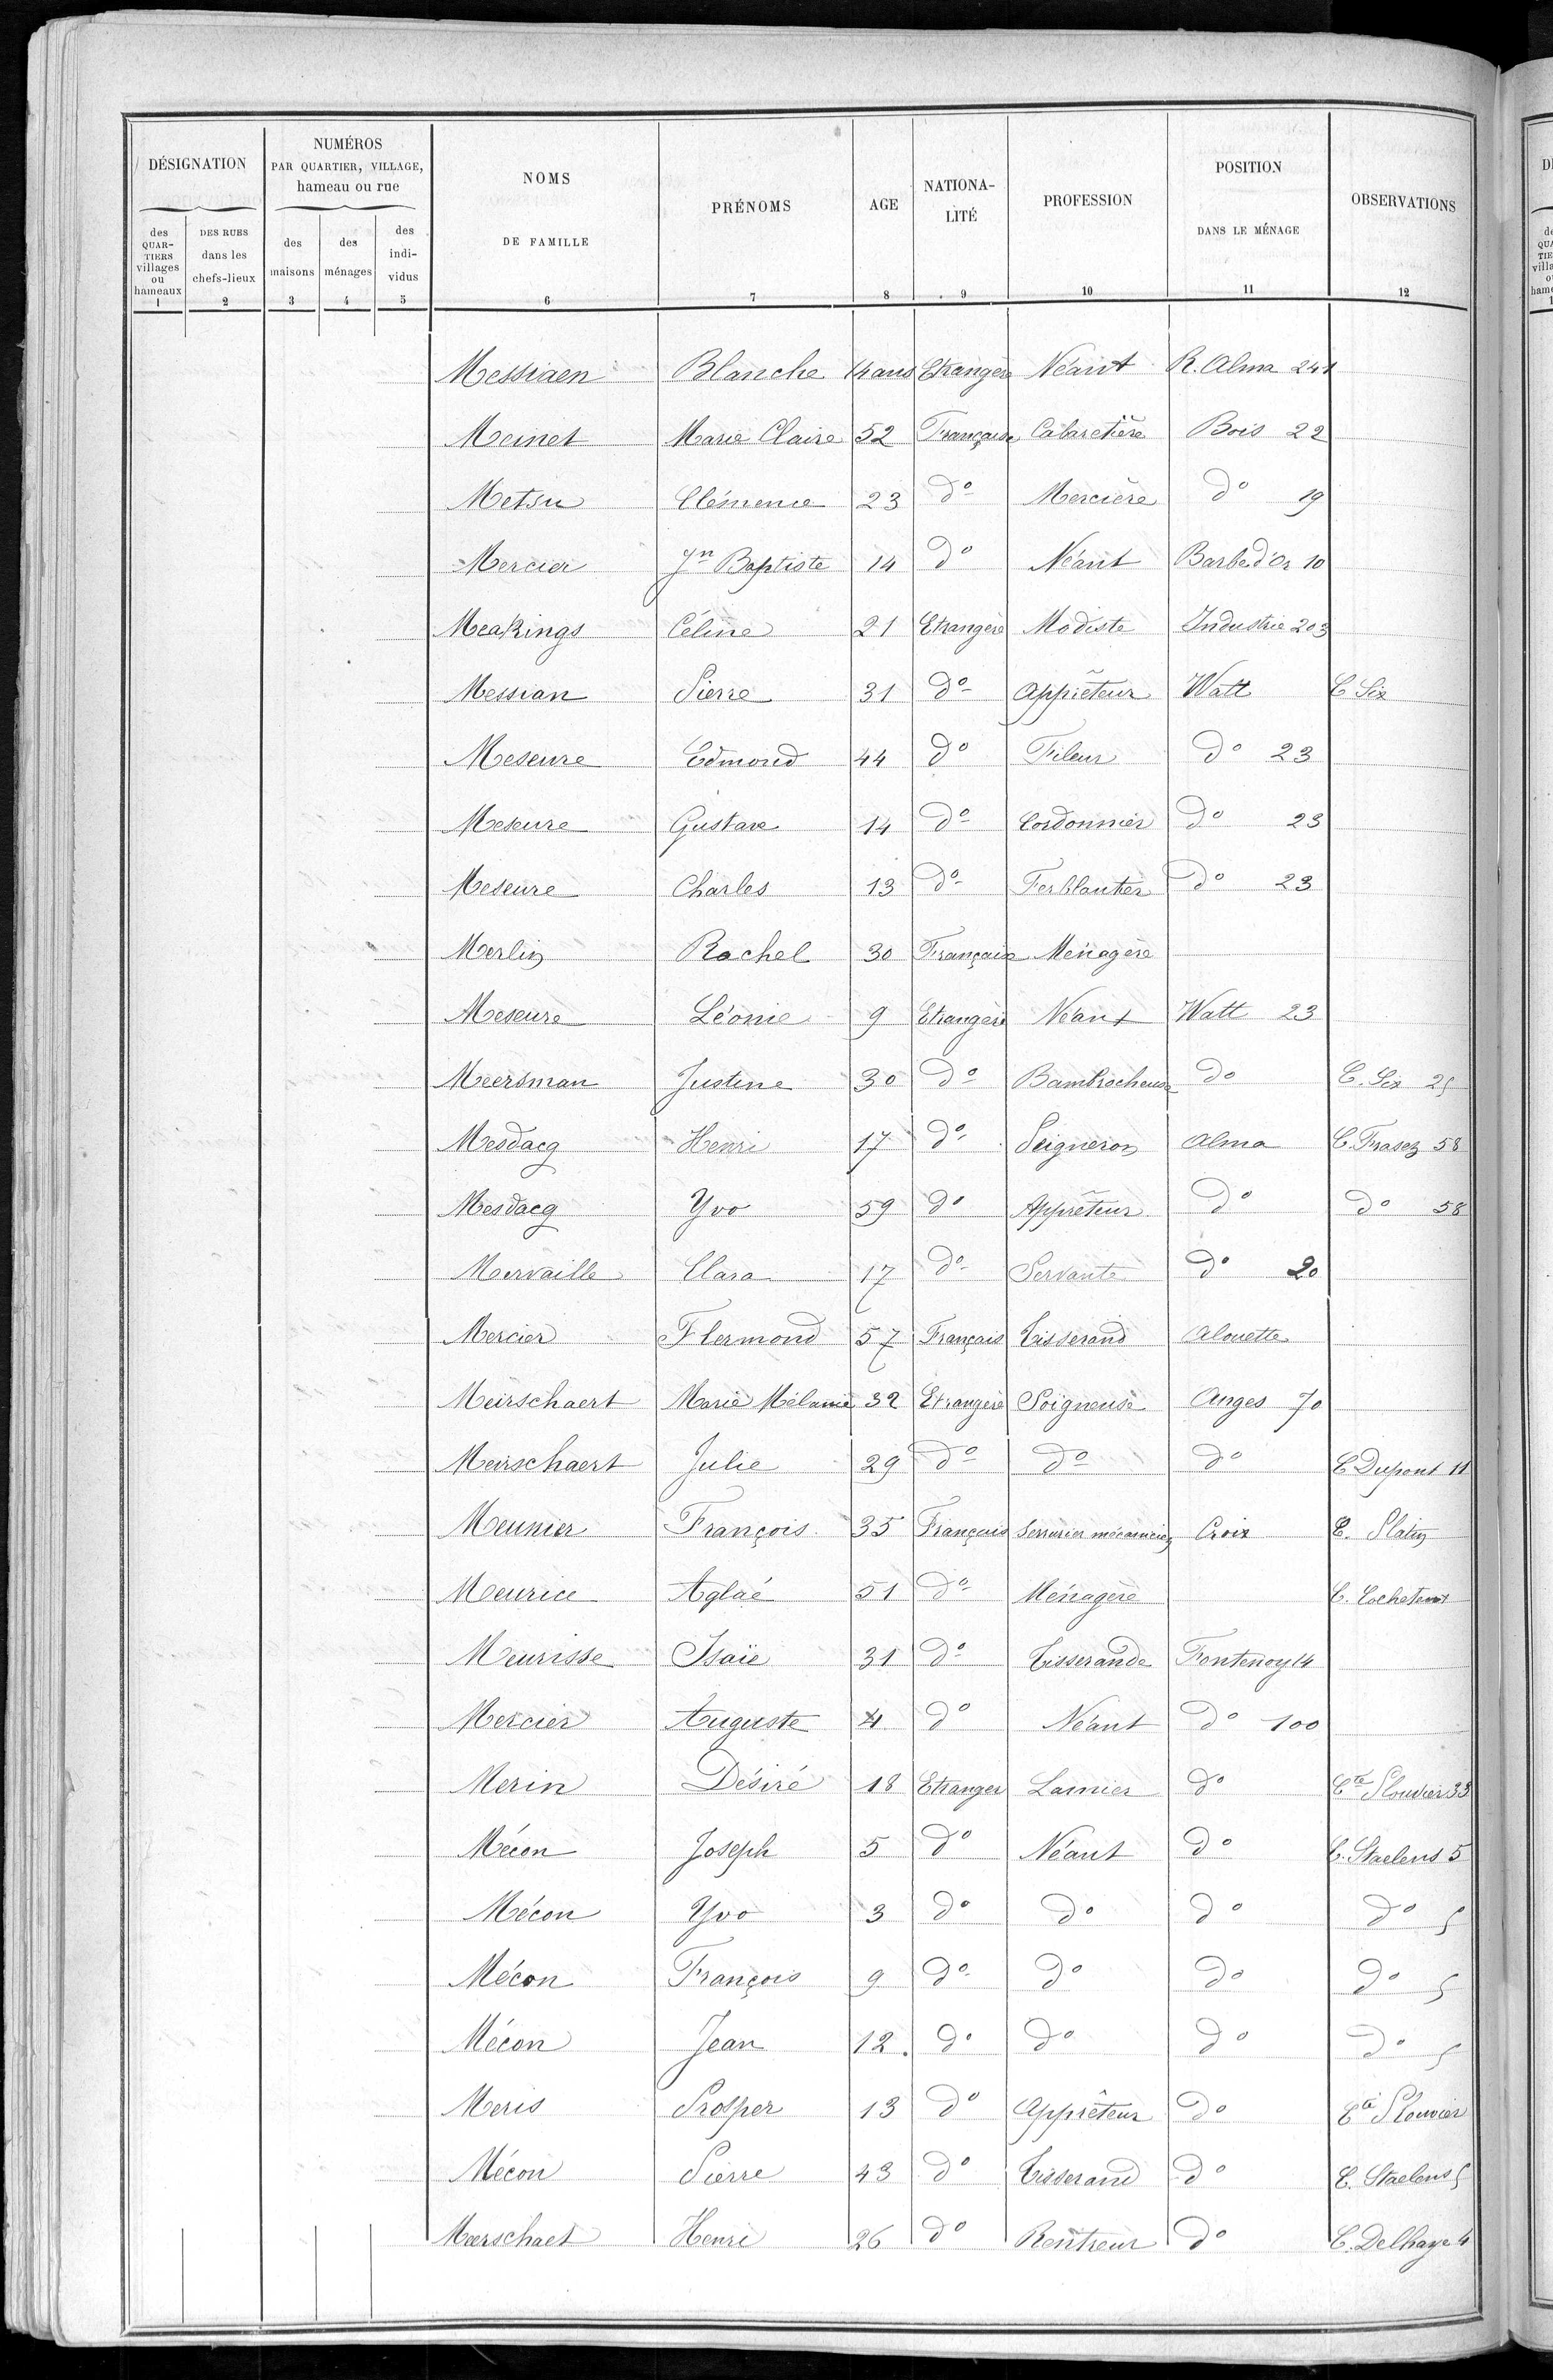 DÉSIGNATION
NUMÉROS
PAR QUARTIER, VILLAGE,
hameau ou rue
NOMS
DE FAMILLE
PRÉNOMS
AGE
NATIONA-
LITÉ
PROFESSION
POSITION
DANS LE MÉNAGE
OBSERVATIONS
des
QUAR-
TIERS
villages
ou
hameaux
DES RUES
dans les
chefs-lieux
des
maisons
des
ménages
des
indi-
vidus
1 2 3 4 5 6 7 8 9 10 11 12
Messiaen Blanche 4 ans Etrangère Néant R. Alma 241
Meinet Marie Claire 52 Française Cabaretière Bois 22
Metsu Clémence 23 do Mercière do 19
Mercier Jn Baptiste 14 do Néant Barbe d'Or 10
Meakings Céline 21 Etrangère Modiste Industrie 203
Messian Pierre 31 do Apprêteur Watt C Six
Meseure Edmond 44 do Fileur do 23
Meseure Gustave 14 do Cordonnier do 23
Meseure Charles 13 do Ferblantier do 23
Merlin Rachel 30 Française Ménagère
Meseure Léonie 9 Etrangère Néant Watt 23
Meersman Justine 30 do Bambrocheuse do C. Six 25
Mesdacg Henri 17 do Peigneron Alma C. Frasez 58
Mesdacg Yvo 59 do Apprêteur do do 58
Mervaille Clara 17 do Servante do 20
Mercier Flermond 57 Français Tisserand Alouette
Meirschaert Marie Mélanie 32 Etrangère Soigneuse Anges 70
Meirschaert Julie 29 do do do C Dupont 11
Meunier François 35 Français Serrurier mécanicien Croix C. Platin
Meurice Aglaé 51 do Ménagère C. Cocheteux
Meurisse Isaïe 31 do Tisserande Fontenoy 14
Mercier Auguste 4 do Néant do 100
Merin Désiré 18 Etranger Lamier do Cte Plouvier 33
Mécon Joseph 5 do Néant do C. Staelens 5
Mécon Yvo 3 do do do do 5
Mécon François 9 do do do do 5
Mécon Jean 12. do do do do 5
Meris Prosper 13 do Apprêteur do Cté Plouvier
Mécon Pierre 43 do Tisserand do C. Staelens 5
Meerschaet Henri 26 do Rentreur do C. Delhaye 4